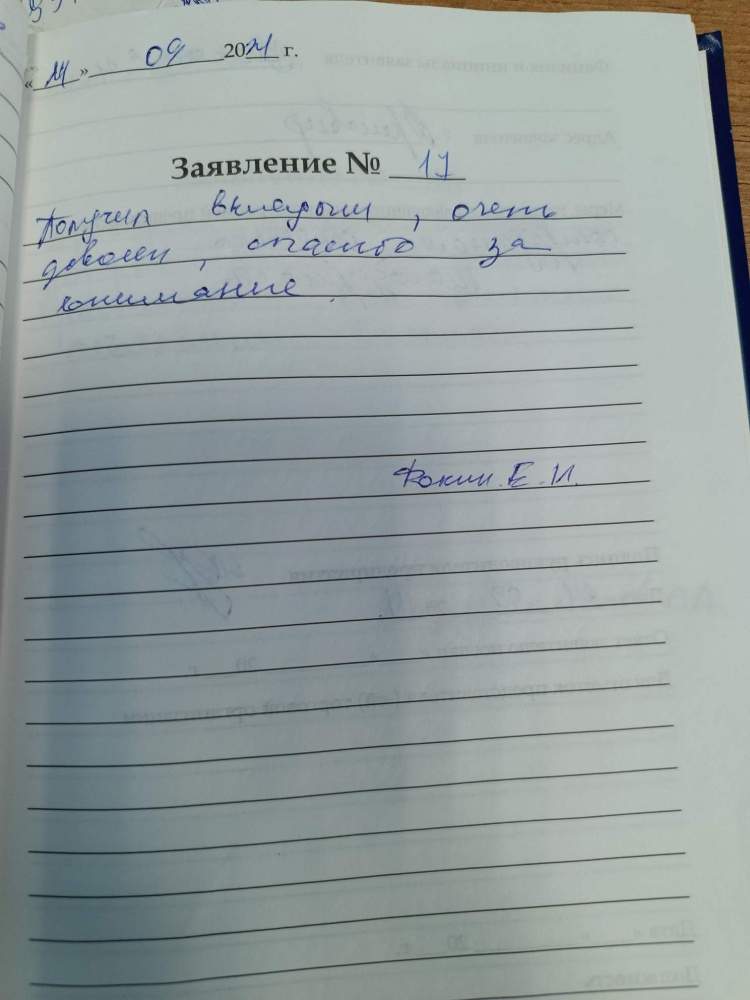 « 21 » 09 2021 г.
Заявление № 17
Получил вкладыши , очень
доволен, спасибо за
внимание.
Фокин. Е. И.